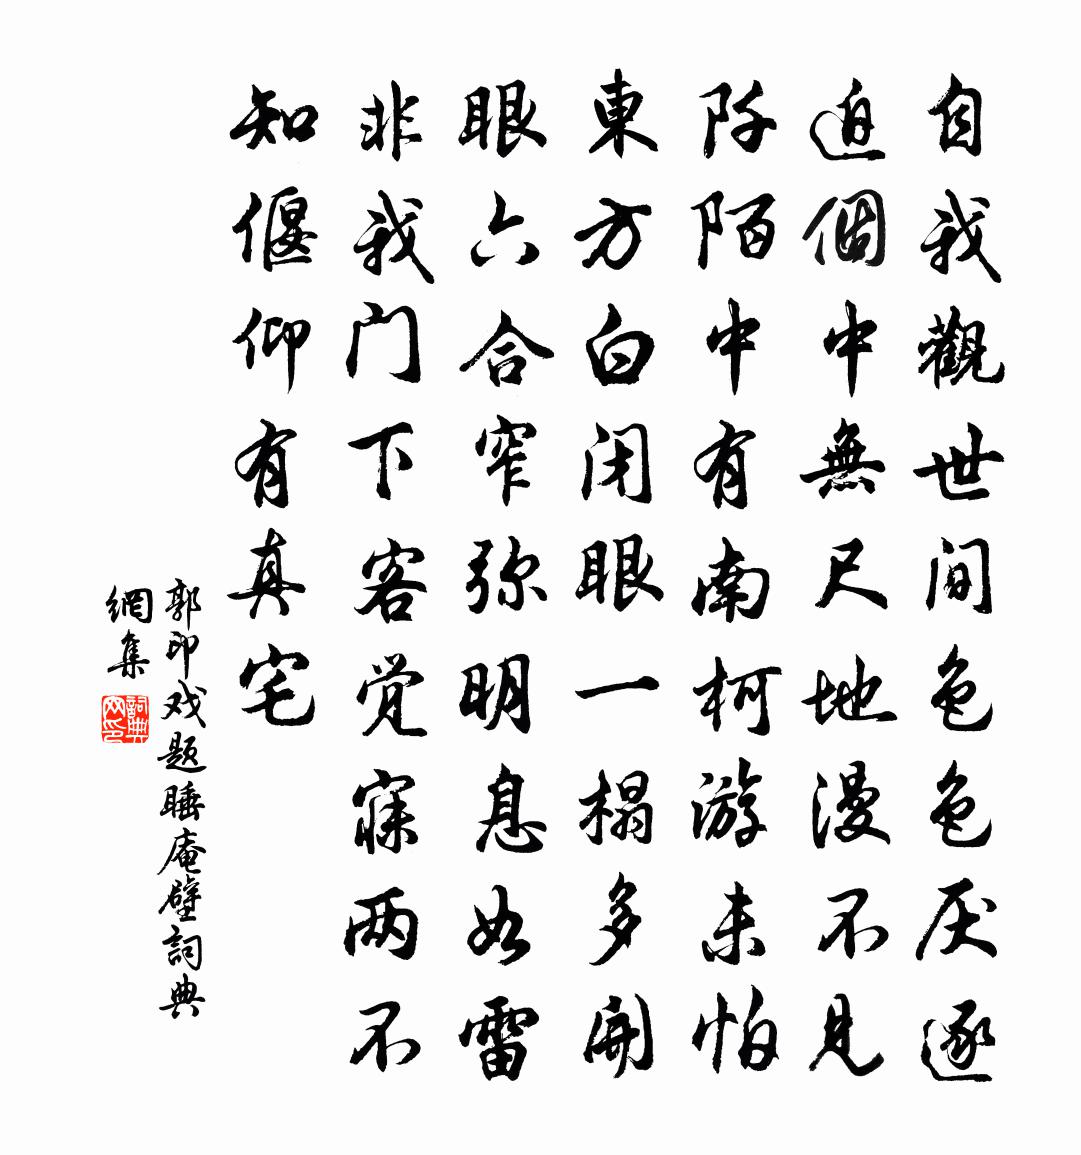 自我觀世间色色厌逐
迫個中無尺地漫不見
阡陌中有南柯游未怕
東方白闭眼一榻多開
眼六合窄弥明息如雷
非我门下客觉寐两不
知偃仰有真宅
郭印戏题睡庵壁詞典
網集
詞典
网印